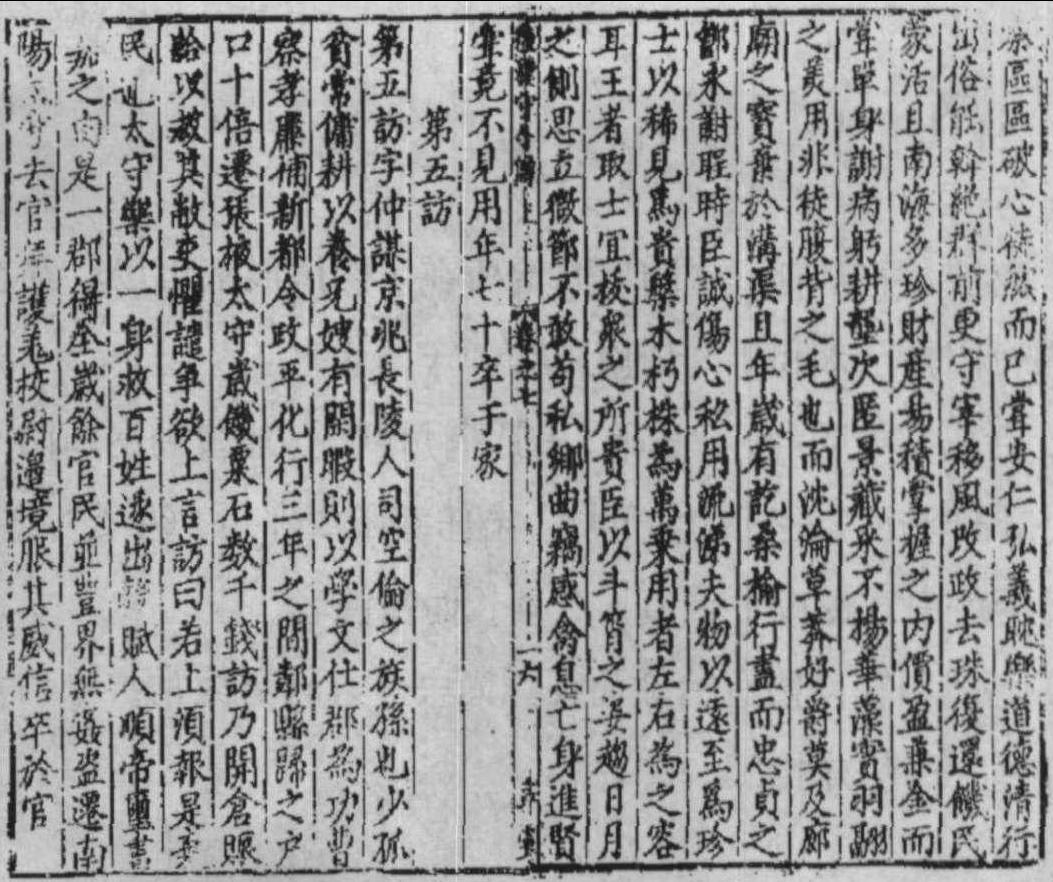 區區破心徒然而已嘗安仁弘義耽樂道德清行
出俗能幹絕群前更守宰移風改政去珠復還饑民
蒙活且南海多珍財產易積掌握之內價盈兼金而
嘗單身謝病躬耕壟次匿景藏采不揚華藻實羽翮
之美用非徒腹背之毛也而沈淪草莽好爵莫及廊
廟之寶棄於溝渠且年歲有訖桑榆行盡而忠貞之
節永謝聖時臣誠傷心私用流涕夫物以遠至爲珍
士以稀見爲貴槃木朽株爲萬乗用者左右爲之容
耳王者取士宜拔衆之所貴臣以斗筲之姿趨日月
之側思立微節不敢苟私鄉曲竊感禽息亡身進賢
卷之七 十六
嘗竟不見用年七十卒于家
第五訪
第五訪字仲謀京兆長陵人司空倫之族孫也少孤
貧常傭耕以養兄嫂有閑暇則以學文仕郡爲功曹
察孝廉補新都令政平化行三年之間鄰縣歸之戶
口十倍遷張掖太守歲饑粟石數千錢訪乃開倉賑
給以救其敝吏懼譴爭欲上言訪曰若上須報是棄
民也太守樂以一身救百姓遂出 賦人順帝璽書
之由是一郡得全歲餘官民並豐界無姦盜遷南
陽 去官 護羌校尉邊境服其威信卒於官